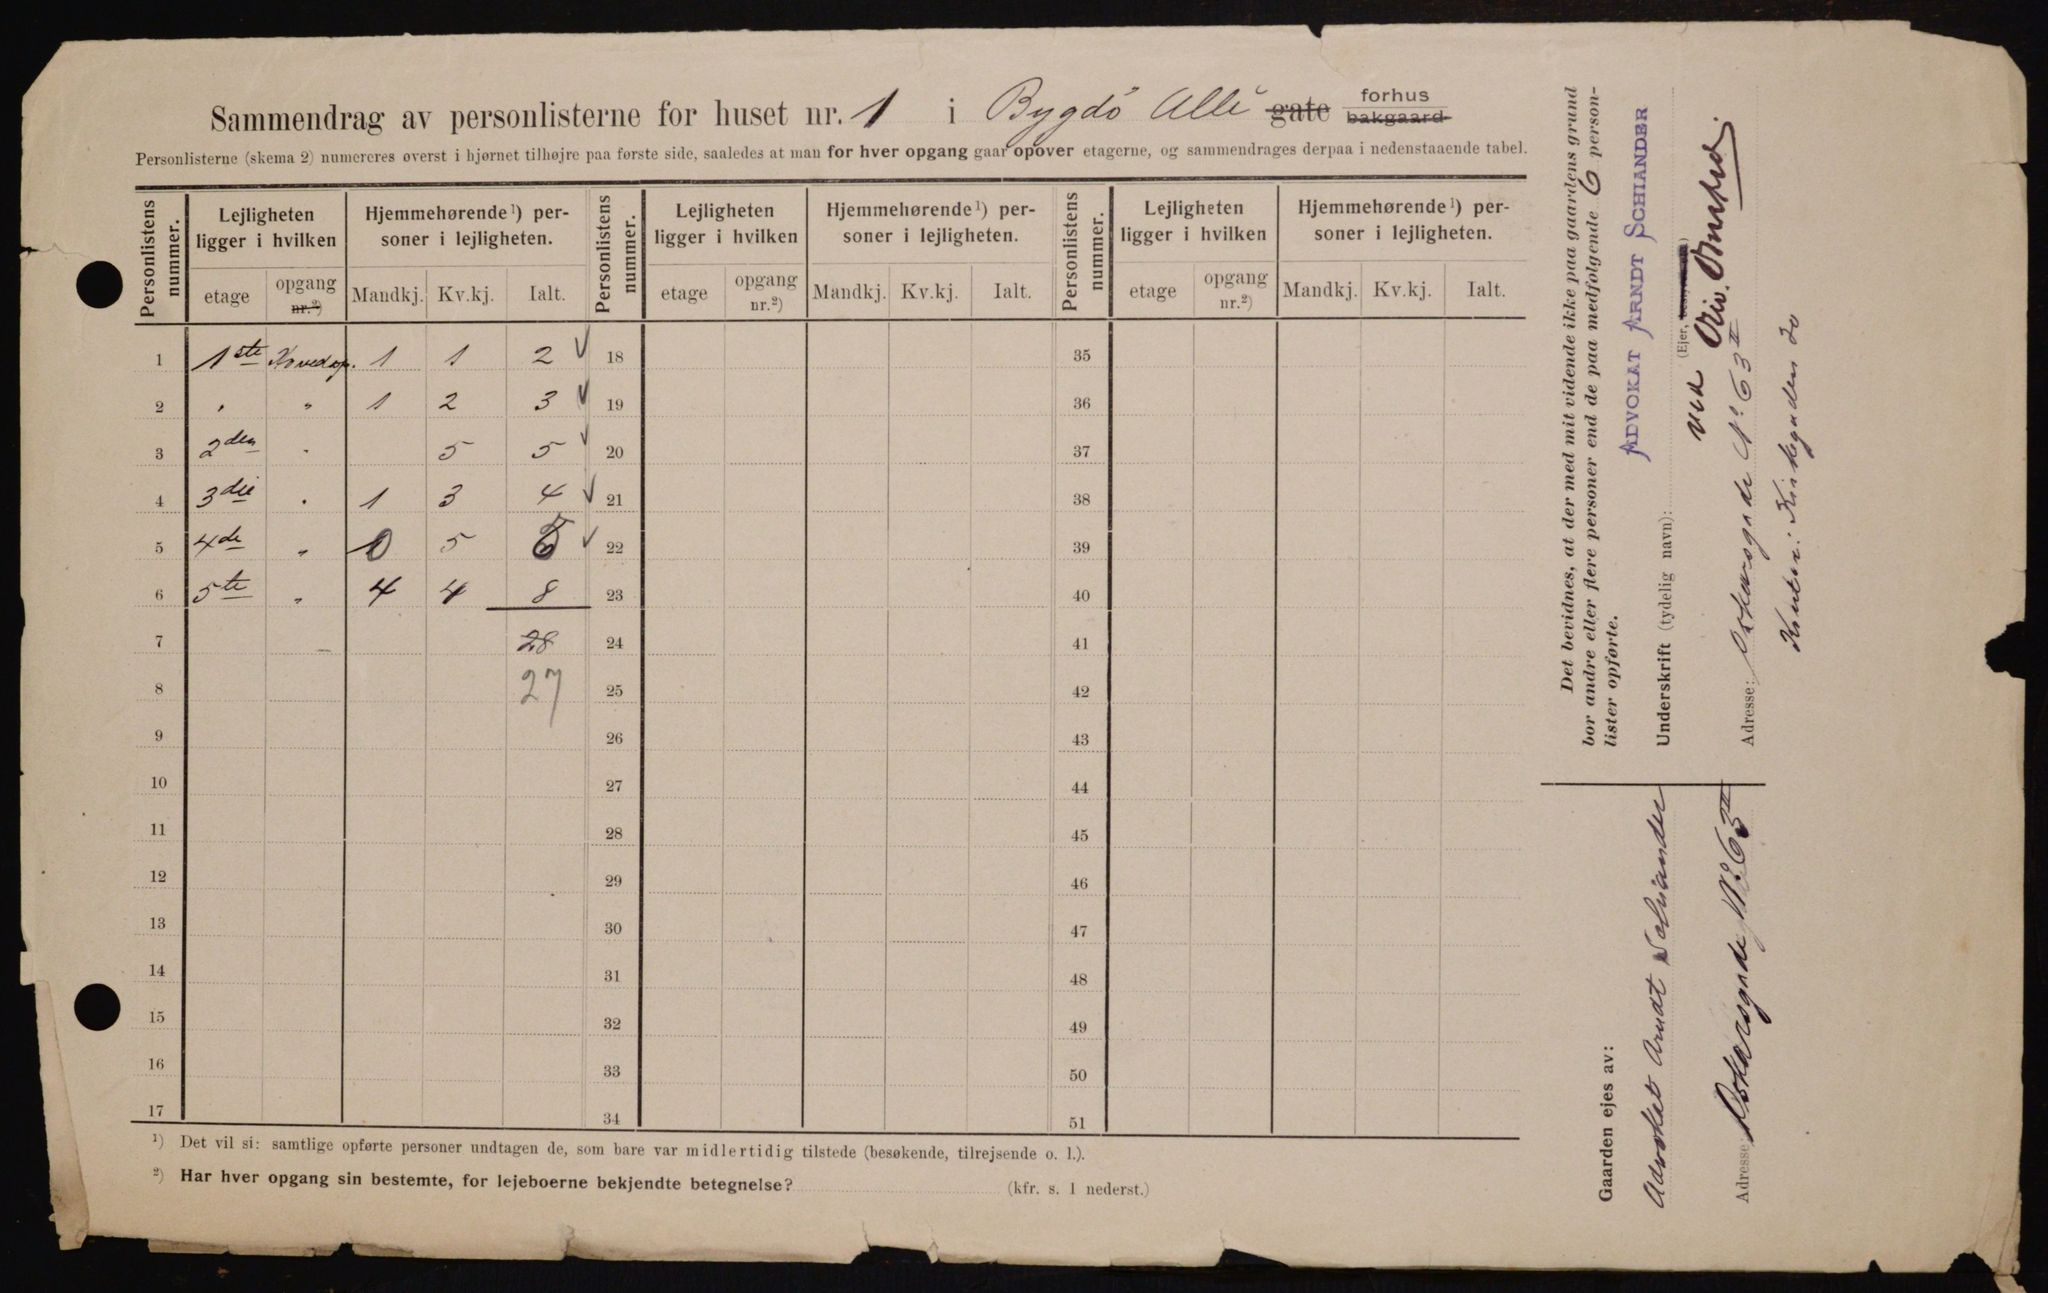 Sammendrag av personlisterne for huset nr. 1 i Bygdö Allé gate forhus
bakgaard
Personlisterne (skema 2) numereres øverst i hjørnet tilhøjre paa første side, saaledes at man for hver opgang gaar opover etagerne, og sammendrages derpaa i nedenstaaende tabel.
Personlistens nummer. Lejligheten ligger i hvilken Hjemmehørende ¹) personer i lejligheten. Personlistens nummer. Lejligheten ligger i hvilken Hjemmehørende ¹) personer i lejligheten. Personlistens nummer. Lejligheten ligger i hvilken Hjemmehørende ¹) personer i lejligheten.
etage opgang nr.²) Mandkj. Kv.kj. Ialt. etage opgang nr.²) Mandkj. Kv.kj. Ialt. etage opgang nr.²) Mandkj. Kv.kj. Ialt.
1 1ste Hovedop. 1 1 2 ✓ 18 35
2 " " 1 2 3 ✓ 19 36
3 2den " 5 5 ✓ 20 37
4 3die " 1 3 4 ✓ 21 38
5 4de " 0 5 5 ✓ 22 39
6 5te " 4 4 8 23 40
7 28 24 41
8 27 25 42
9 26 43
10 27 44
11 28 45
12 29 46
13 30 47
14 31 48
15 32 49
16 33 50
17 34 51
¹) Det vil si: samtlige opførte personer undtagen de, som bare var midlertidig tilstede (besøkende, tilrejsende o. l.).
²) Har hver opgang sin bestemte, for lejeboerne bekjendte betegnelse? (kfr. s. 1 nederst.)
Det bevidnes, at der med mit vidende ikke paa gaardens grund
bor andre eller flere personer end de paa medfølgende 6 person-
lister opførte.
ADVOKAT ARNDT SCHIANDER
Underskrift (tydelig navn):
(Ejer,
ved
Adresse: Oskarsgade No 63 II
Kontor: Kirkegaden 20
Gaarden ejes av:
Advokat Arndt Schiander
Adresse Oskarsgade No 63 II